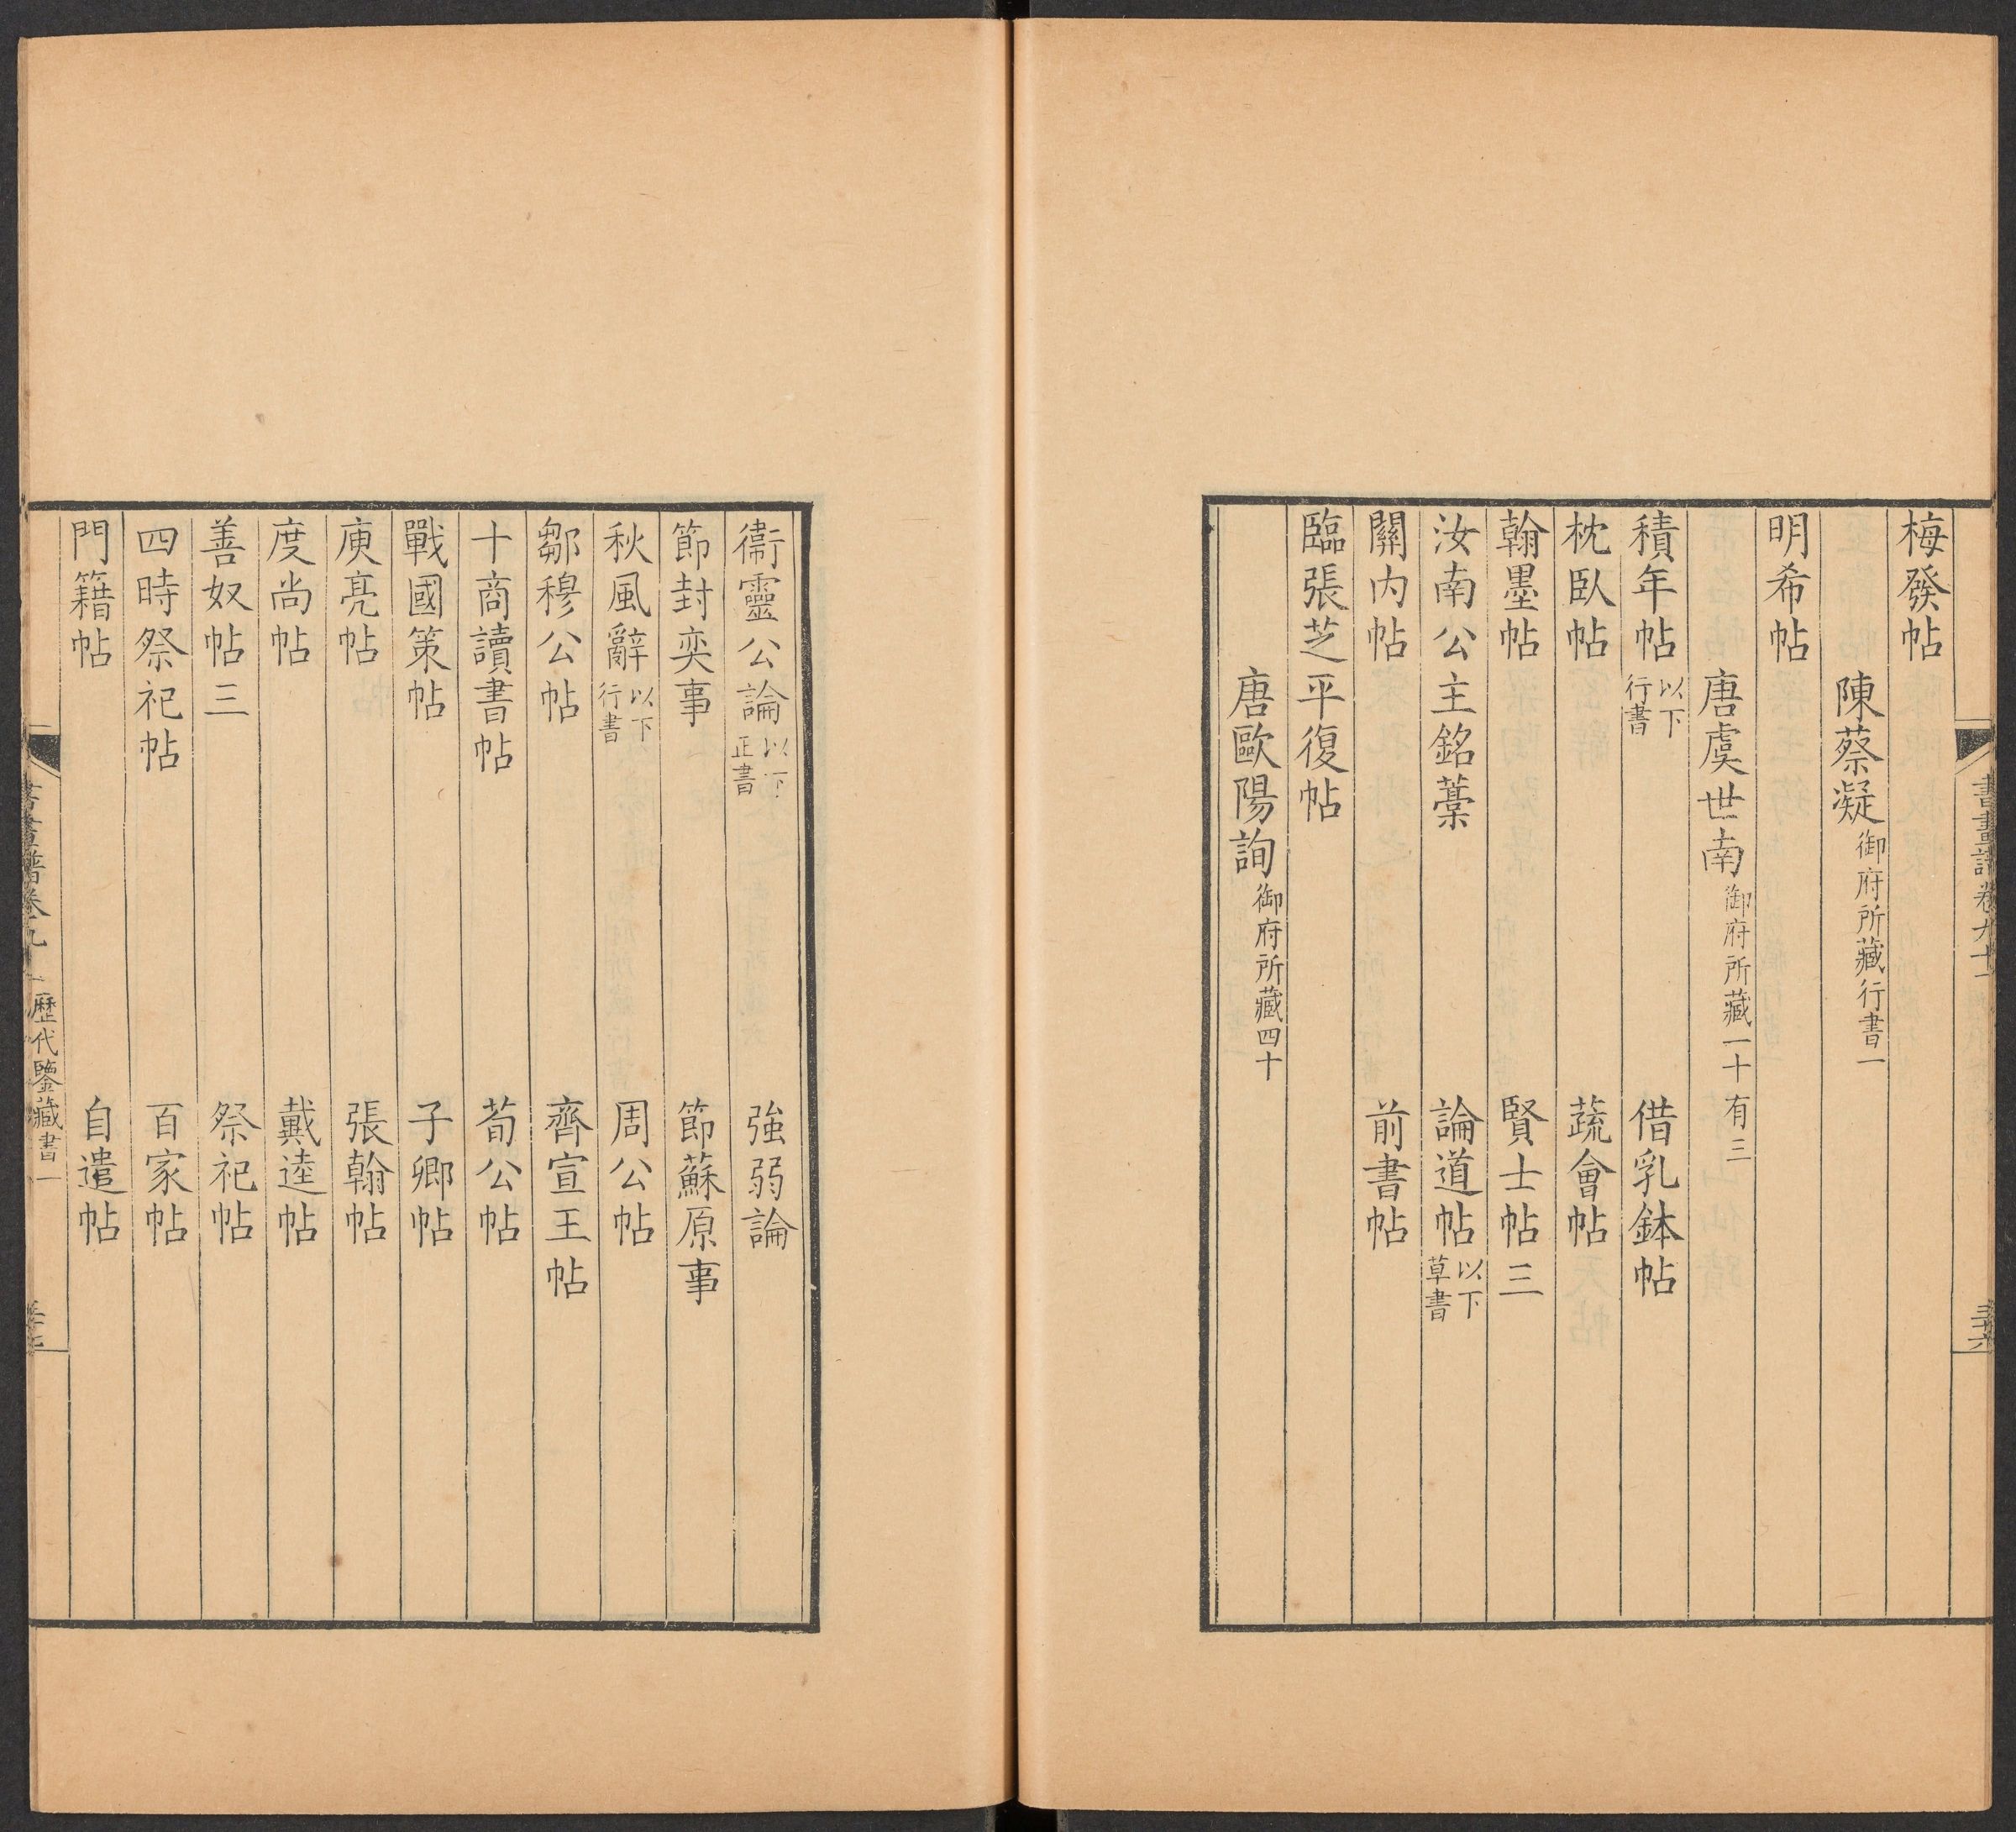 梅發帖
陳蔡凝御府所藏行書一
明希帖
唐虞世南御府所藏一十有三
積年帖以下行書　借乳鉢帖
枕臥帖　蔬會帖
翰墨帖　賢士帖三
汝南公主銘藁　論道帖以下草書
關内帖　前書帖
臨張芝平復帖
唐歐陽詢御府所藏四十
衞靈公論以下正書　強弱論
節封奕事　節蘇原事
秋風辭以下行書　周公帖
鄒穆公帖　齊宣王帖
十商讀書帖　荀公帖
戰國策帖　子卿帖
庾亮帖　張翰帖
度尚帖　戴逵帖
善奴帖三　祭祀帖
四時祭祀帖　百家帖
門籍帖　自遣帖
歷代鑒藏書一